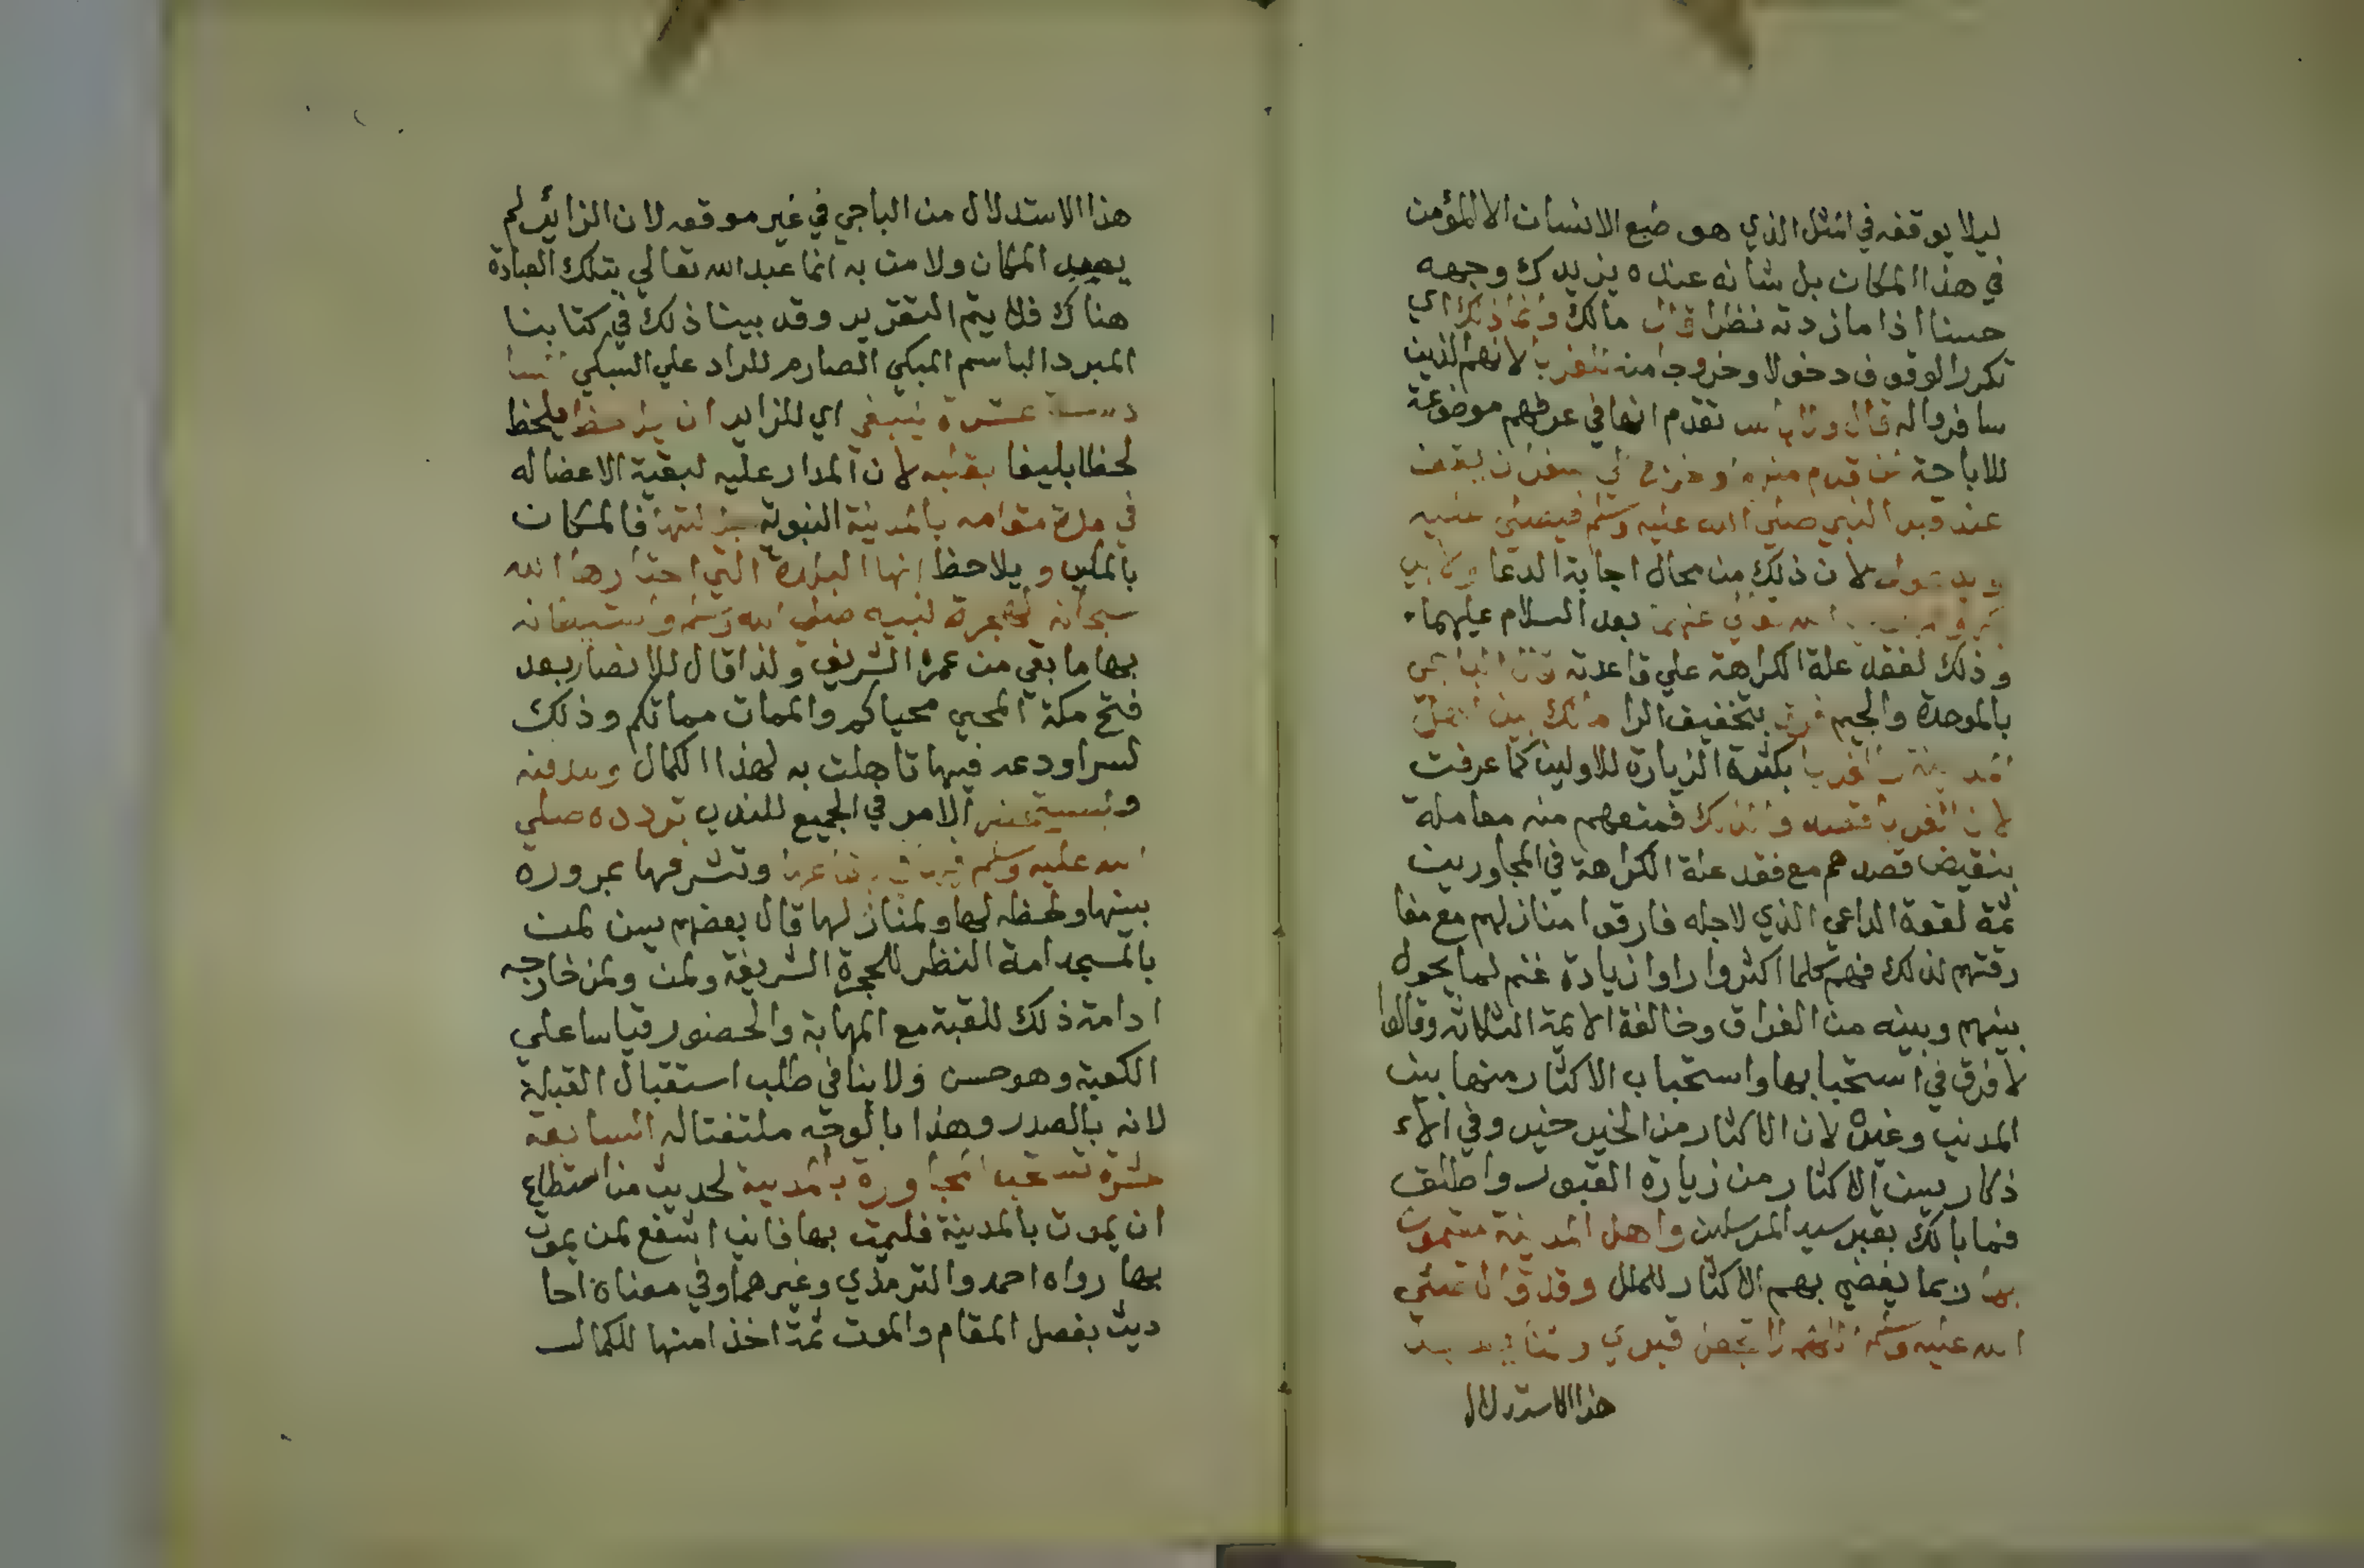 ليلا يوقفه في الثقل الذي هو طبع الانسان الا المؤمن
في هذا المكان بل شانه عنده يزيدك وجهه
حسنا اذا ما زدته نظرا قال مالك وانما ذلك اي
تكرر الوقوف دخولا وخروجا منه للغربا لانهم الذين
سافروا له قال ولا باس تقدم انها في عرفهم موضوعة
للاباحة لمن قدم منهم او خرج الي سفر ان يقف
عند قبر النبي صلي الله عليه وسلم فيصلي عليه
ويدعو له لان ذلك من محال اجابة الدعا ولابي
بكر وعمر رضي الله تعالي عنهما بعد السلام عليهما
وذلك لفقد علة الكراهة علي قاعدته قال الباجي
بالموحدة والجيم فرق بتخفيف الرا مالك بين اهل
المدينة والغربا بكثرة الزيارة للاولين كما عرفت
لان الغربا قصدوا لذلك فمنعهم منه معاملة
بنقيض قصدهم مع فقد علة الكراهة في المجاورين
ثمة لقوة الداعي الذي لاجله فارقوا منازلهم مع مفا
رقتهم لذلك فهم كلما اكثروا راوا زيادة غنم لما يحول
بينهم وبينه من الفراق وخالفة الايمة الثلاثة وقالوا
لا فرق في استحبابها واستحباب الاكثار منها بين
المدني وغيره لان الاكثار من الخير خير وفي الاء
ذكار يسن الاكثار من زيارة القبور واطلق
فما بالك بقبر سيد المرسلين واهل المدينة مقيمون
بها ربما يفضي بهم الاكثار للملل وقد قال صلي
الله عليه وسلم اللهم لا تجعل قبري وثنا يعبد
هذا الاستدلال
هذا الاستدلال من الباجي في غير موقعه لان الزائر لم
يعبد المكان ولا من به انما عبد الله تعالي بتلك العبادة
هناك فلا يتم التقرير وقد بينا ذلك في كتابنا
المبرد الباسم المبكي الصارم للراد علي السبكي
عشرة ينبغي اي للزاير ان يلاحظ يلحظ
لحظا بليغا بقلبه لان المدار عليه لبقية الاعضا له
في مدة مقامه بالمدينة النبوية جلالتها فالمكان
بالمكين ويلاحظ انها البلدة التي اختارها الله
سبحانه لهجرة نبيه صلي الله وسلم واستيطانه
بها ما بقي من عمره الشريف ولذا قال للانصار بعد
فتح مكة المحيي محياكم والممات مماتكم وذلك
لسر اودعه فيها تاهلت به لهذا الكمال ومدفنه
ويستحضر الامر في الجميع للندب تردده صلي
الله عليه وسلم فيها في بقاعها وتشرفها بمروره
بينها ولحظه لها ولمنازلها قال بعضهم يسن لمن
بالمسجد امة النظر للحجرة الشريفة ولمن ولمن خارجه
ادامة ذلك للقبة مع المهابة والحضور قياسا علي
الكعبة وهو حسن ولا ينافي طلب استقبال القبلة
لانه بالصدر وهذا بالوجه ملتفتا له السابعة
عشرة تستحب المجاورة بالمدينة لحديث من استطاع
ان يموت بالمدينة فليمت بها فاني اشفع لمن يموت
بها رواه احمد والترمذي وغيرهما وفي معناه احا
ديث بفصل المقام والموت ثمة اخذا منها للكمال